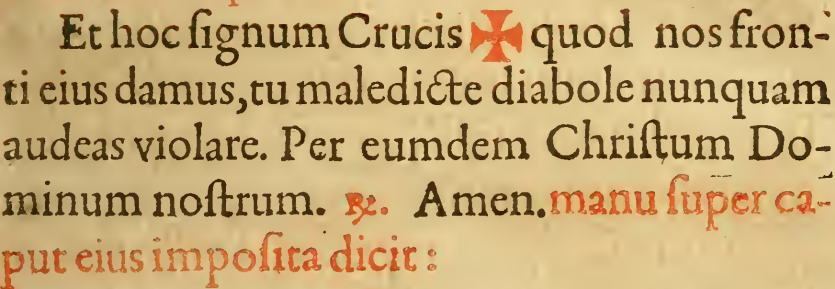 Et hoc ſignum Crucis ✠ quod nos fron-
ti eius damus, tu maledicte diabole nunquam
audeas violare. Per eumdem Chriſtum Do-
minum noſtrum. ℟. Amen. manu ſuper ca-
put eius impoſita dicit: